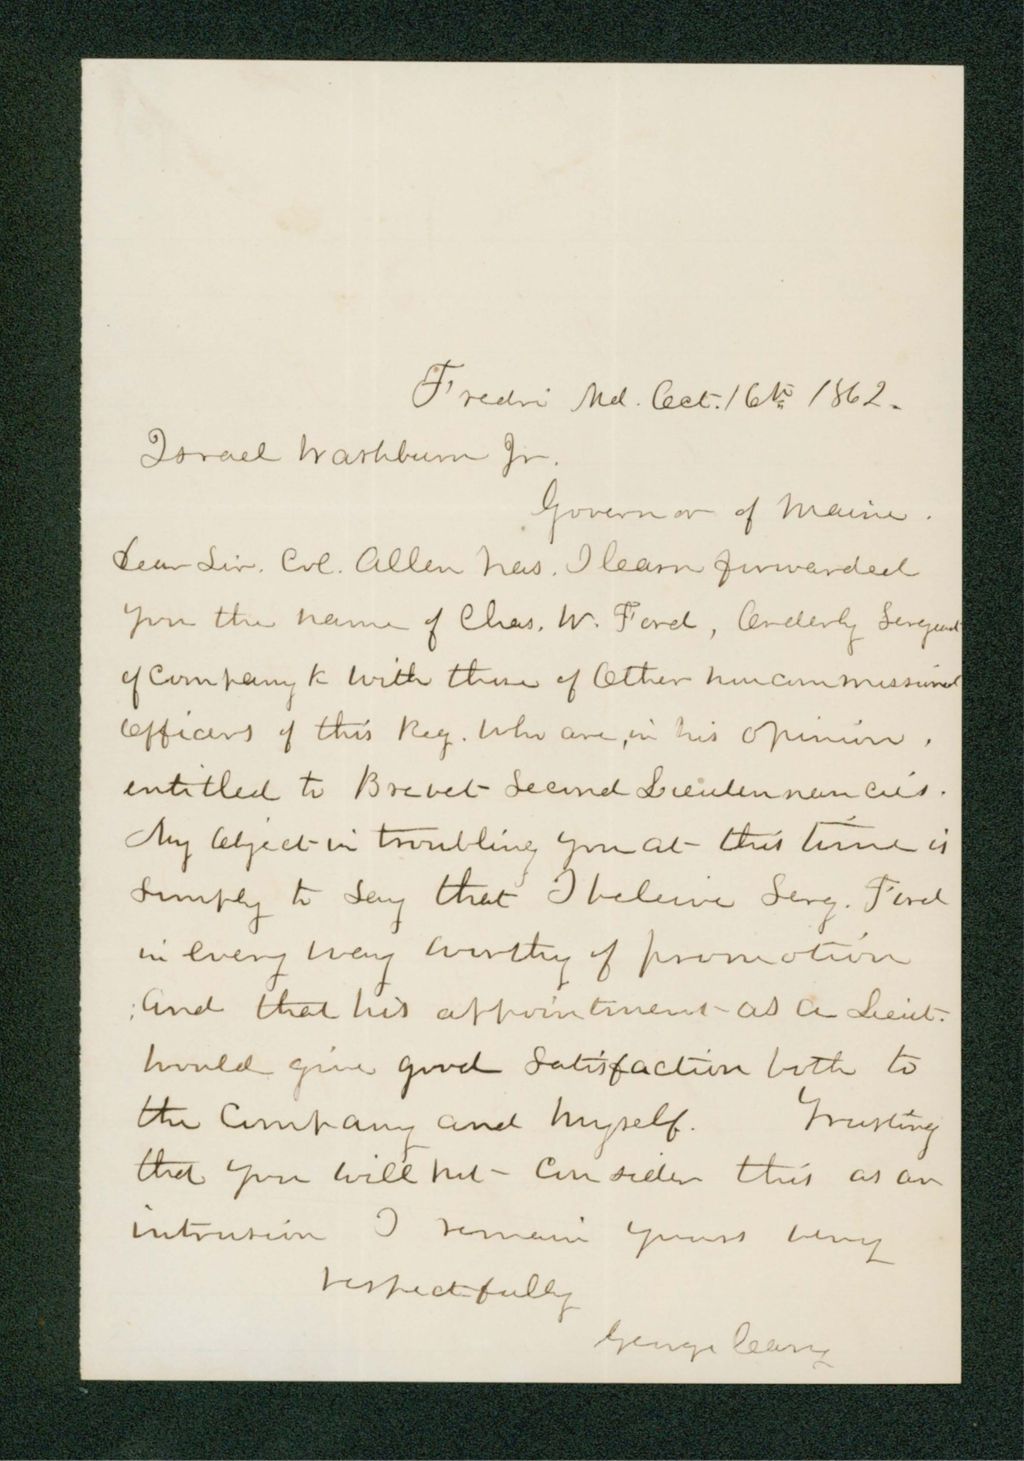 Fredri Md. Oct. 16th 1862.
Israel Washburn Jr.
Governor of Maine.
Dear Sir. Col. Allen has. I learn forwarded
you the name of Chas. W. Ford, Orderly Sergeant
of Company K with those of Other noncommissioned
Officers of this Reg. who are, in his opinion,
entitled to Brevet Second Lieutennancies.
My Object in troubling you at this time is
simply to say that I beleive Serg. Ford
in every way worthy of promotion
and that his appointment as a Lieut.
would give good satisfaction both to
the Company and myself. Trusting
that you will not consider this as an
intrusion I remain yours very
respectfully
George Cary